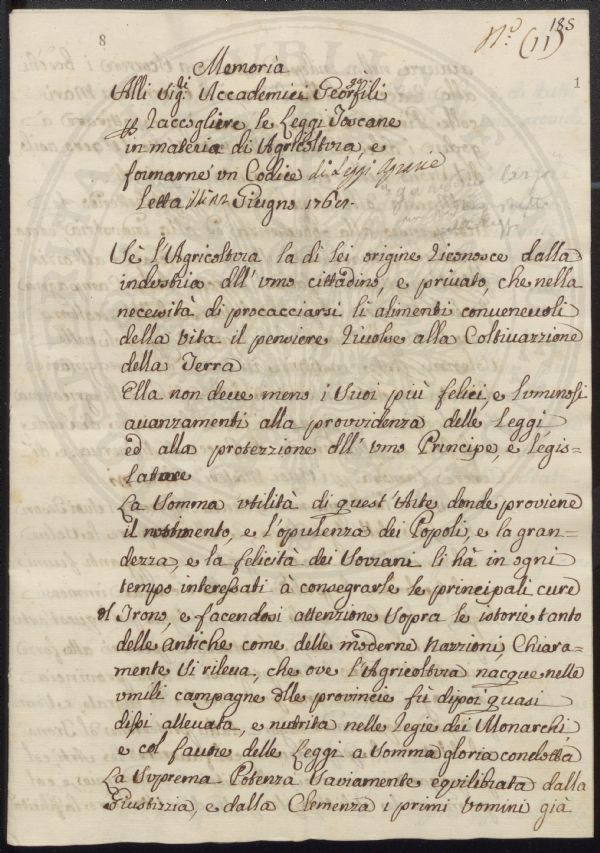 8
N.° (11)
185
1
Memoria
Alli Sig.ri Accademici Georgofili
Raccogliere le Leggi Toscane
in materia di Agricoltura, e
formarne un Codice di Leggi Agrarie
Letta Giugno
Sè l'Agricoltura la di lei origine riconosce dalla
industria dell' umo cittadino, e privato, che nella
necessità di procacciarsi li alimenti convenevoli
della vita il pensiere rivolse alla Coltivazzione
della Terra
Ella non deve meno i Suoi più felici, e luminosi
avanzamenti alla provvidenza delle Leggi,
ed alla protezzione dell' umo Principe, e Legis=
latore
La Somma utilità di quest'Arte donde proviene
il nutrimento, e l'opulenza dei Popoli, e la gran=
dezza, e la felicità dei Sovrani li hà in ogni
tempo interessati à consegrarle le principali cure
del Trono, e facendosi attenzione Sopra le istorie tanto
delle antiche come delle moderne Nazzioni, Chiara=
mente Si rileva, che ove l'Agricoltura nacque nelle
umili campagne delle provincie fù dipoi quasi
dissi allevata, e nutrita nelle Regie dei Monarchi,
e col favore delle Leggi a Somma gloria condotta
La Suprema Potenza Saviamente equilibrata dalla
Giustizzia, e dalla Clemenza i primi Uomini già